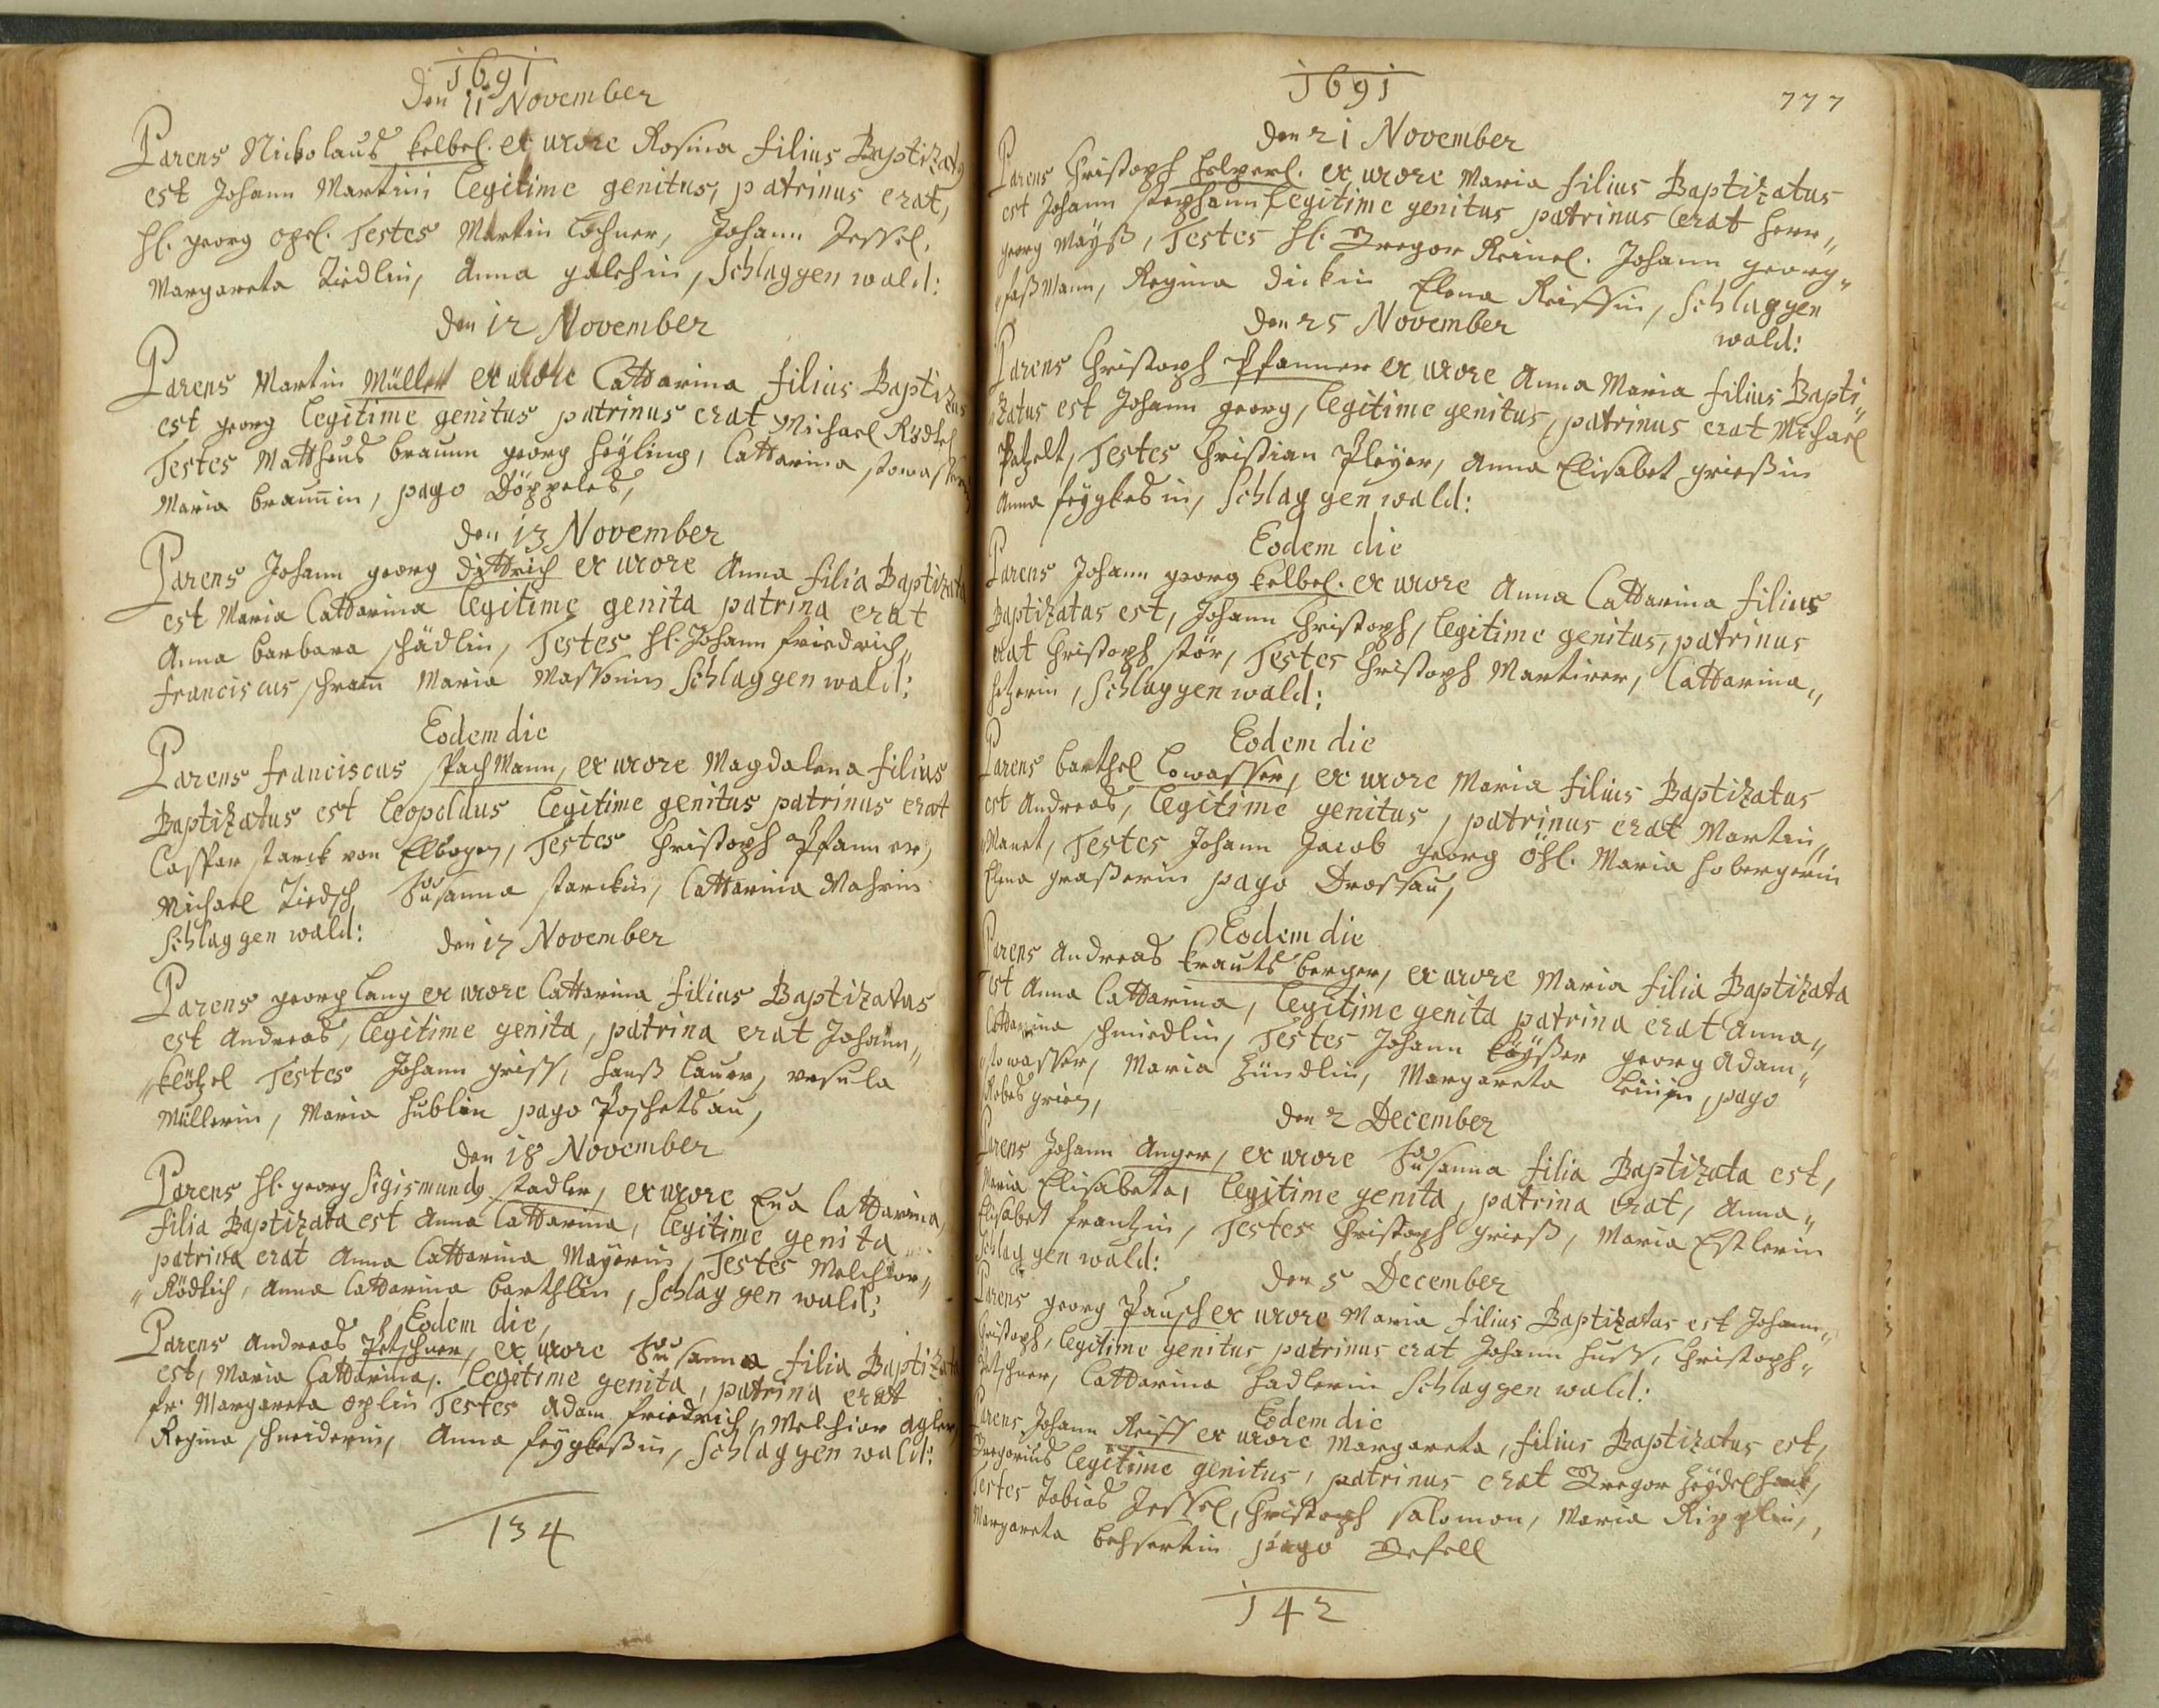 1691
Den 11 November
Parens Nickolaus Kelbel. ex uxore Rosina filius Baptizatg
est Johann Martin; legitime genitus, patrinus erat,
hl. georg Opel. Testes Martin Lochner, Johann Jessel,
Margareta Liedlin, Anna galchin, Schlaggenwald:
Den 12 November
Parens Martin Müller ex uxore Cattarina filius Baptizus
est georg legitime genitus patrinus erat Michael Rödtel
Testes Mattheus braunn georg heyling, Cattarina
Maria braunin, pago Döppeles,
Den 13 November
Parens Johann georg dittrich ex uxore Anna filia Baptizata
est Maria Cattarina legitime genita patrina erat
Anna barbara schädlin, Testes hl. Johann friedrich,,
franciscus schram Maria Massonin Schlaggenwald:
Eodem die
Parens franciscus PachMann, ex uxore Magdalena filius
Baptizatus est leopoldus legitime genitus patrinus erat
Caspar starck von Elbogen, Testes Christoph Pfanner,
Michael Ziedsch Susanna starckin, Cattarina Mahrin
Schlaggenwald:
Den 17 November
Parens georg lang ex uxore Cattarina filius Baptizatus
est Andreas, legitime genita, patrina erat Johann,,
,,Klötzel Testes Johann griss, hanß lauer, vrsula
Müllerin, Maria hublin pago Poschetsau,
Den 18 November
Parens hl. georg Sigismundg stadler, ex uxore Eua Cattarina,
filia Baptizata est Anna Cattarina, legitime genita
patrina erat Anna Cattarina Mayerin, Testes Melchior,,
,,Rödlich, Anna Cattarina barthlin, Schlaggenwald:
Eodem die,
Parens Andreas Petschner, ex uxore Susanna filia Baptizata
est, Maria Cattarina,. legitime genita, patrina erat
fr. Margareta oplin Testes Adam friedrich, Melchior
Regina schneiderin, Anna feygkeßin, Schlaggenwald:
134
1691
777
Den 21 November
Parens Christoph ex uxore Maria filius Baptizatus
est Johann stephann legitime genitus patrinus erat herr,,
georg Mayß, Testes hl. Gregor Reinel. Johann georg,,
,,paßMann, Regina dickin Elena Reissin, Schlaggen
wald:
Den 25 November
Parens Christoph Pfanner ex uxore Anna Maria filius Bapti,,
,,zatus est Johann georg, legitime genitus, patrinus erat Michael
Petzelt, Testes Christian Pleyer, Anna Elisabet grießin
Anna feygkesin, Schlaggenwald:
Eodem die
Parens Johann georg Kelbel. ex uxore Anna Cattarina filius
Baptizatus est, Johann Christoph, legitime genitus, patrinus
erat Christoph stör, Testes Christoph Martirer, Cattarina,,
hezerin, Schlaggenwald:
Eodem die
Parens barthel Cowasser, ex uxore Maria filius Baptizatus
est Andreas, legitime genitus, patrinus erat Martin,,
,,Manet, Testes Johann Jacob georg öhl. Maria hobergerin
Elena graßerin pago Drossau,
Eodem die
Parens Andreas Krautsberger, ex uxore Maria filia Baptizata
est Anna Cattarina, legitime genita patrina erat Anna,,
Cattarina schmiedlin, Testes Johann Käyßer georg Adam,,
stowasser, Maria Zündlin, Margareta pago
Robesgrien,
Den 2 December
Parens Johann Anger, ex uxore Susanna filia Baptizata est,
Maria Elisabeta, legitime genita, patrina erat, Anna,,
Elisabet frantzin, Testes Christoph Grieß, Maria Estlerin
Schlaggenwald:
Den 5 December
Parens georg Pausch ex uxore Maria filius Baptizatus est Johann,,
Christoph, legitime genitus patrinus erat Johann huss, Christoph,,
Petschner, Cattarina hadlerin Schlaggenwald:
Eodem die
Parens Johann Reiss ex uxore Margareta, filius Baptizatus est,
Gregorius legitime genitus, patrinus erat Gregor
Testes Tobias Jessel, Christoph Salomon, Maria Ripplin,
Margareta behsertin pago Gefell
142